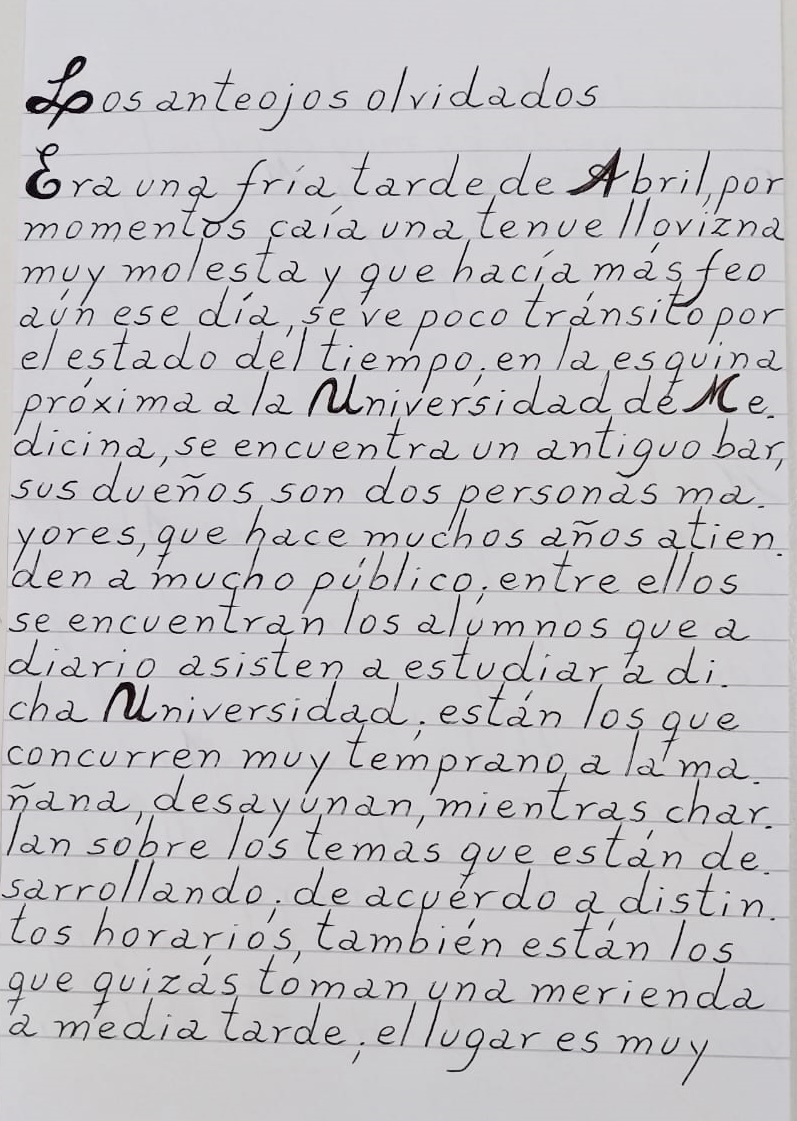 Los anteojos olvidados
Era una fría tarde de Abril, por
momentos caía una tenue llovizna
muy molesta y que hacía más feo
aún ese día, se ve poco tránsito por
el estado del tiempo; en la esquina
próxima a la Universidad de Me.
dicina, se encuentra un antiguo bar,
sus dueños son dos personas ma.
yores, que hace muchos años atien.
den a mucho público; entre ellos
se encuentran los alumnos que a
diario asisten a estudiar a di.
cha Universidad; están los que
concurren muy temprano a la ma.
ñana, desayunan, mientras char.
lan sobre los temas que están de.
sarrollando; de acuerdo a distin.
tos horarios, también están los
que quizás toman una merienda
a media tarde; el lugar es muy